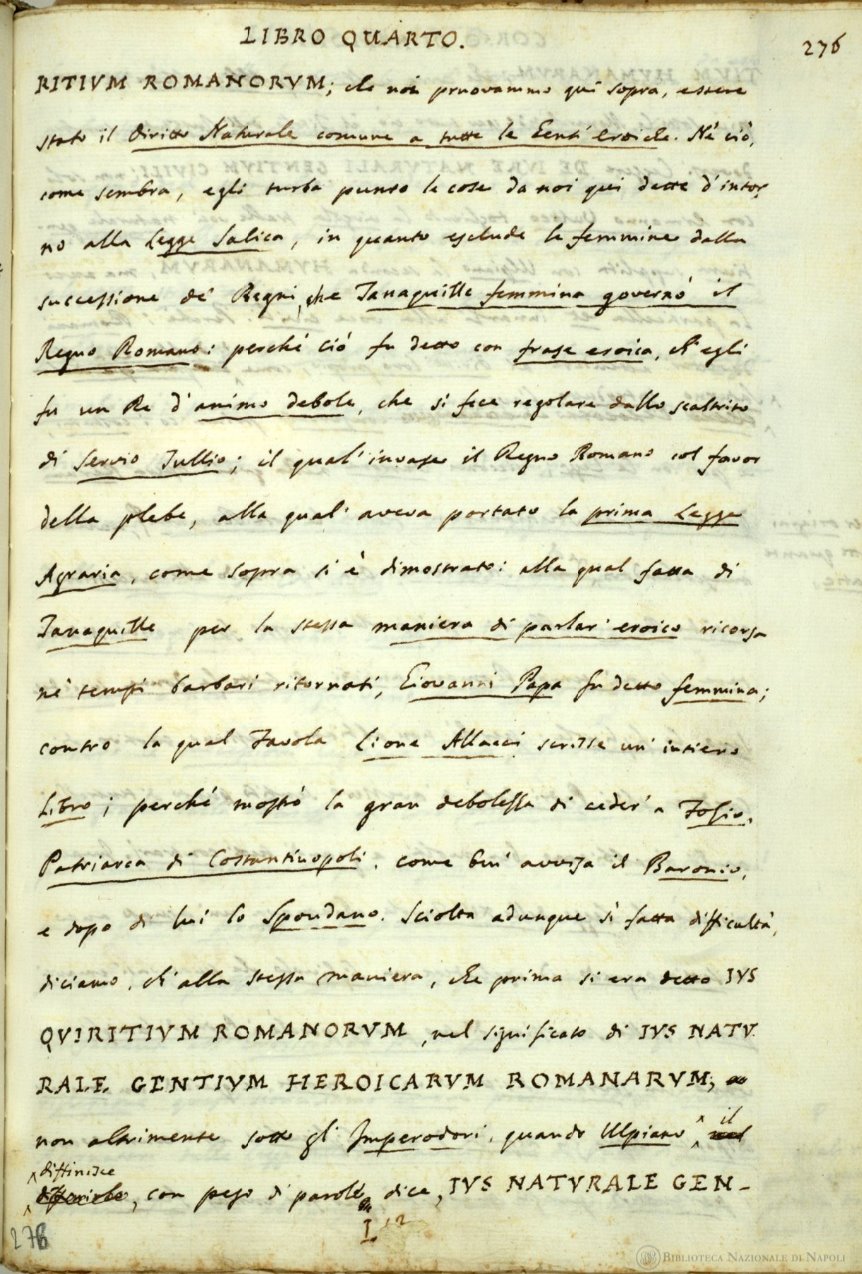 LIBRO QUARTO.
276
RITIVM ROMANORVM; che noi pruovammo quì sopra, essere
stato il Diritto Naturale comune a tutte le Genti Eroiche. Nè ciò,
come sembra, egli turba punto le cose da noi qui dette d'intor
no alla Legge Salica, in quanto esclude le femmine dalla
successione de' Regni, che Tanaquille femmina governò il
Regno Romano: perchè ciò fu detto con frase eroica, ch'egli
fu un Re d'animo debole, che si fece regolare dallo scaltrito
di Servio Tullio; il qual'invase il Regno Romano col favor
della plebe, alla qual' aveva portato la prima Legge
Agraria, come sopra si è dimostrato: alla qual fatta di
Tanaquille per la stessa maniera di parlar' eroico ricorsa
ne' tempi barbari ritornati, Giovanni Papa fu detto femmina;
contro la qual Favola Lione Allacci scrisse un' intiero
Libro; perchè mostrò la gran debolezza di ceder' a Fozio,
Patriarca di Costantinopoli, come ben' avvisa il Baronio,
e dopo di lui lo Spondano. Sciolta adunque sì fatta difficultà,
diciamo, ch'alla stessa maniera, che prima si era detto IVS
QVIRITIVM ROMANORVM, nel significato di IVS NATV
RALE GENTIVM HEROICARVM ROMANARVM;
non altrimente sotto gl' Imperadori, quando Ulpiano il
diffinisce
, con peso di parole dice, IVS NATVRALE GEN-
276
BIBLIOTECA NAZIONALE DI NAPOLI